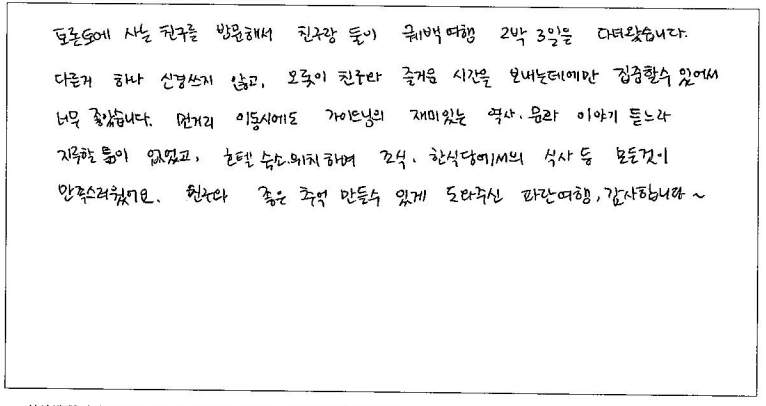 토론토에 사는 친구를 방문해서 친구랑 둘이 퀘백여행 2박 3일을 다녀왔습니다.
다른거 하나 신경쓰지 않고, 오롯이 친구와 즐거운 시간을 보내는데에만 집중할수 있어서
너무 좋았습니다. 먼거리 이동시에도 가이드님의 재미있는 역사. 문화 이야기 듣느라
지루할 틈이 없었고, 호텔 숙소.위치하며 조식. 한식당에서의 식사 등 모든것이
만족스러웠어요. 친구와 좋은 추억 만들수 있게 도와주신 파란여행, 감사합니다~